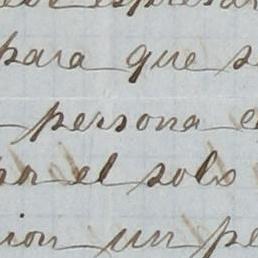 para que s
persona e
por el solo
ion un pe